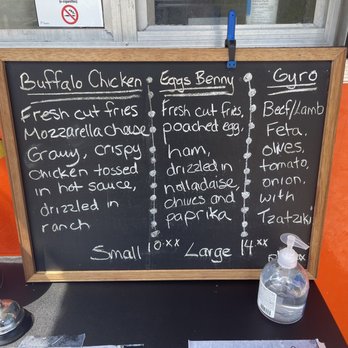 Buffalo Chicken
Fresh cut fries
Mozzarella cheese
Gravy, crispy
Chicken tossed
in hot sauce,
drizzled in
ranch
Eggs Benny
Fresh cut fries,
poached egg,
ham,
drizzled in
holladaise,
chives and
paprika
Gyro
Beef/Lamb
Feta,
olives,
tomato,
onion,
with
Tzatziki
Small 10.xx Large 14.xx